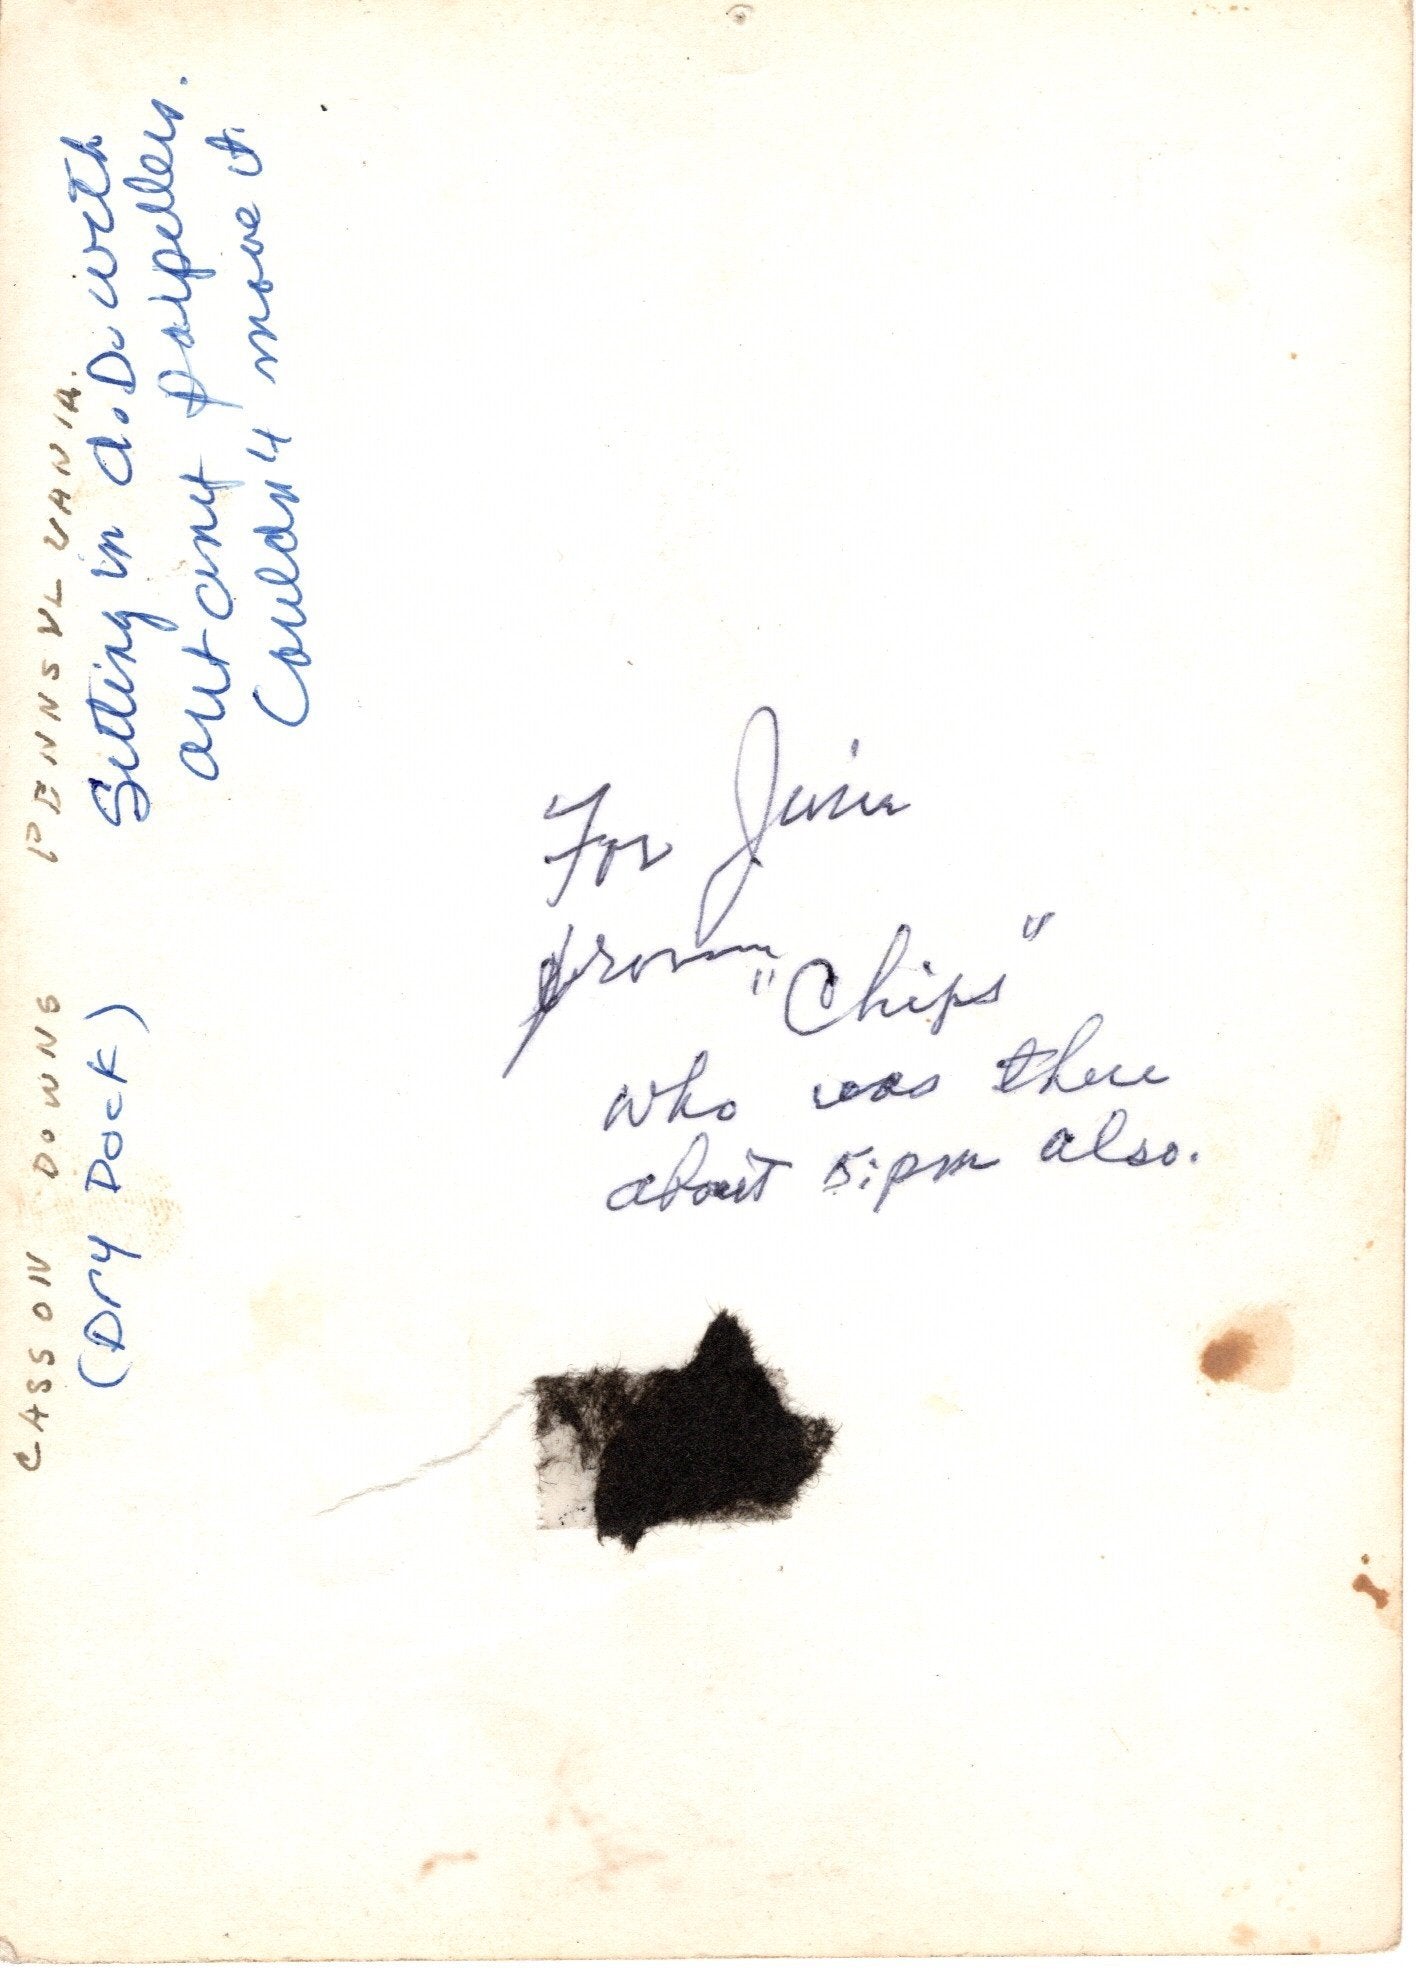 CASSON DOWNS PENNSYLVANIA.
(Dry Dock) Setting in a.D. with
out any porpellers.
Couldn't move it.
For
from "Chips"
who was there
about 5:pm also.